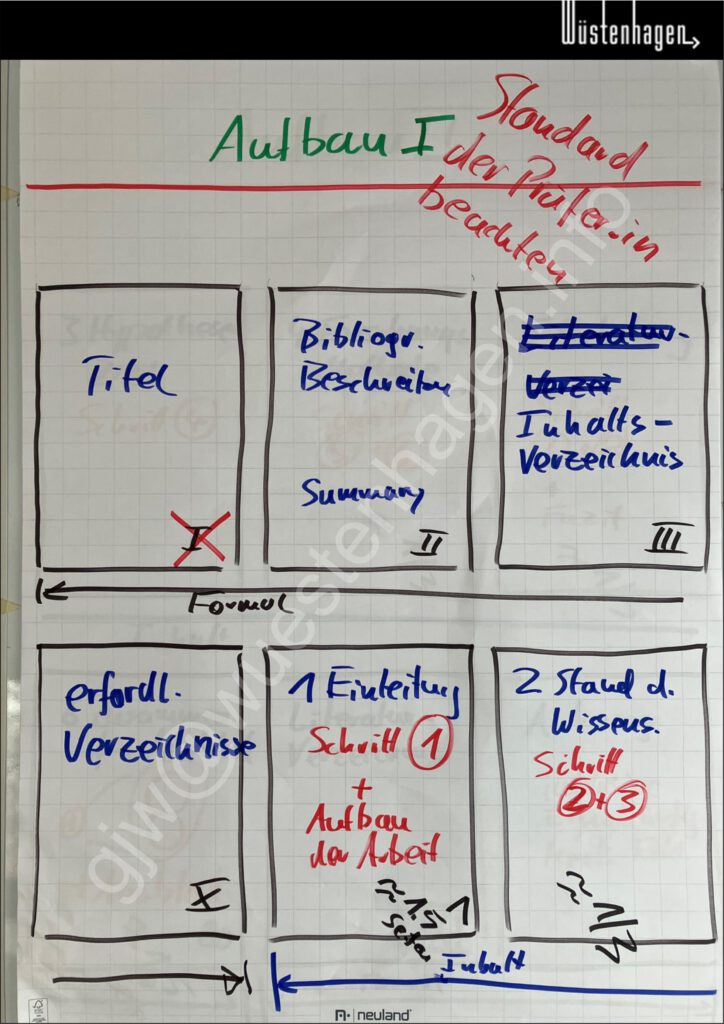 Wüstenhagen
Aufbau I
Standard
der Prüfer.in
beachten
Titel
I
Bibliogr.
Beschreibung
Summary
II
Literatur-
Verzei
Inhalts-
verzeichnis
III
Formal
erfordl.
Verzeichnisse
X
1 Einleitung
Schritt 1
+
Aufbau
der Arbeit
≈ 1,5
Seiten
1
2 Stand d.
Wissens.
Schritt
2+3
≈ 1/3
Inhalt
neuland
gjw@wuestenhagen.info